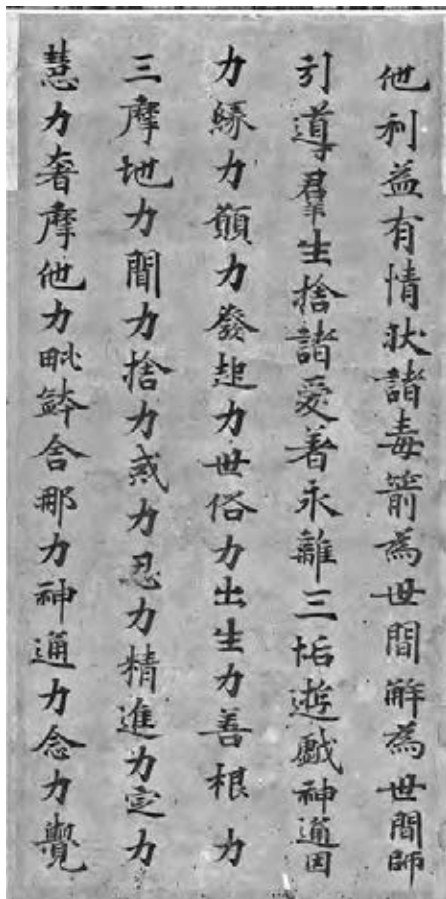 他利益有情拔諸毒箭為世間解為世間師
引導羣生捨諸愛著永離三垢遊戲神通因
力縁力願力發起力世俗力出生力善根力
三摩地力聞力捨力戒力忍力精進力定力
慧力奢摩他力毗鉢舍那力神通力念力覺